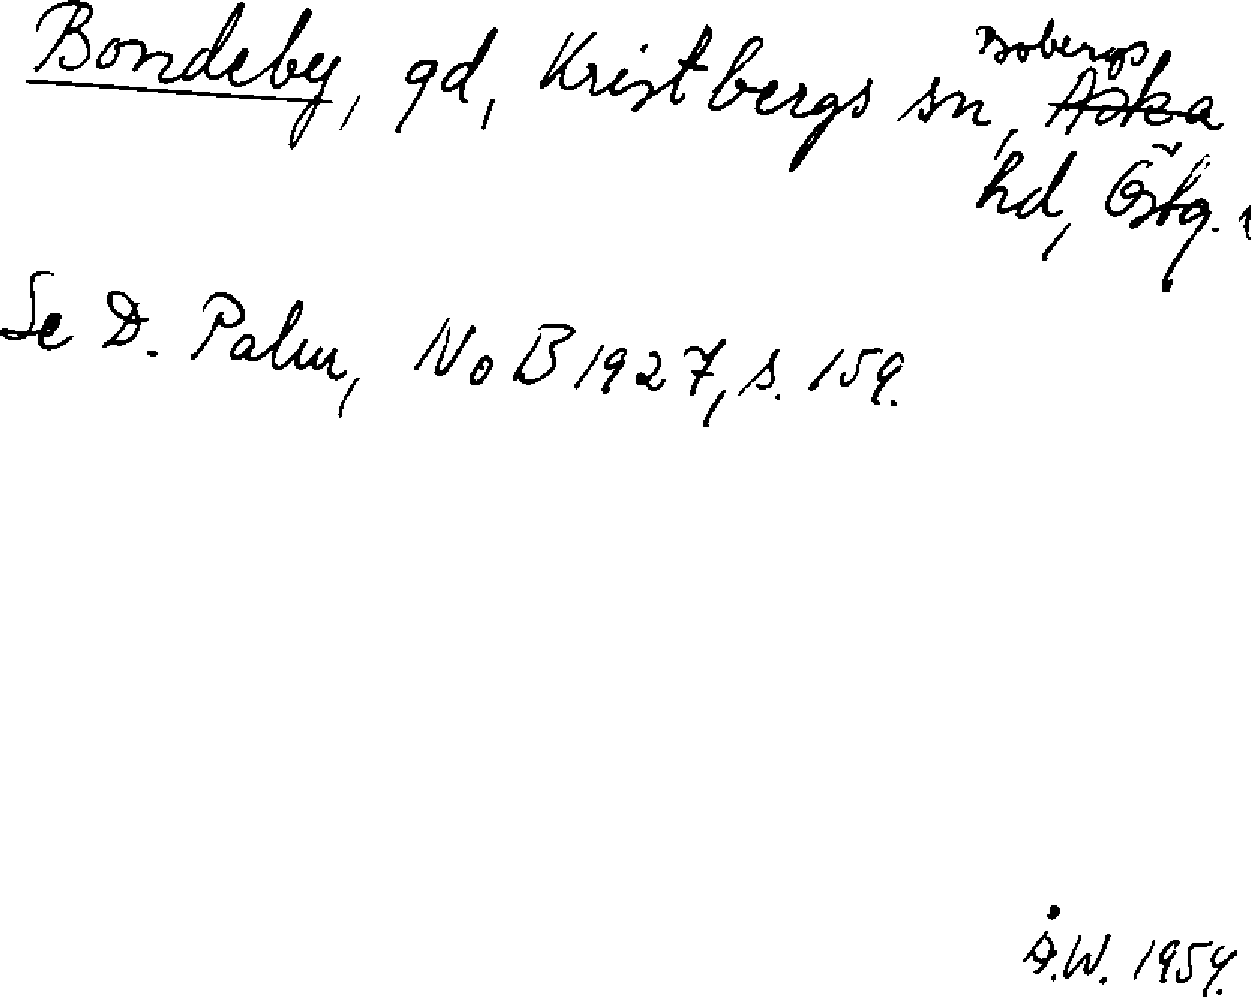 Bondeby, gd, Kristbergs sn, Bobergs
hd, Östg.
Se D. Palm, NoB 1927, s. 159.
A.W. 1954.